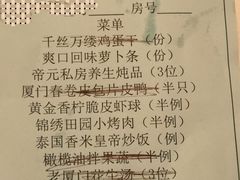 房号
菜单
千丝万缕鸡蛋干（份）
爽口回味萝卜条（份）
帝元私房养生炖品（3位）
厦门春卷皮包片皮鸭（半只）
黄金香柠脆皮虾球（半例）
锦绣田园小烤肉（半例）
泰国香米皇帝炒饭（例）
橄榄油拌果蔬（半例）
老厦门花生汤（3位）